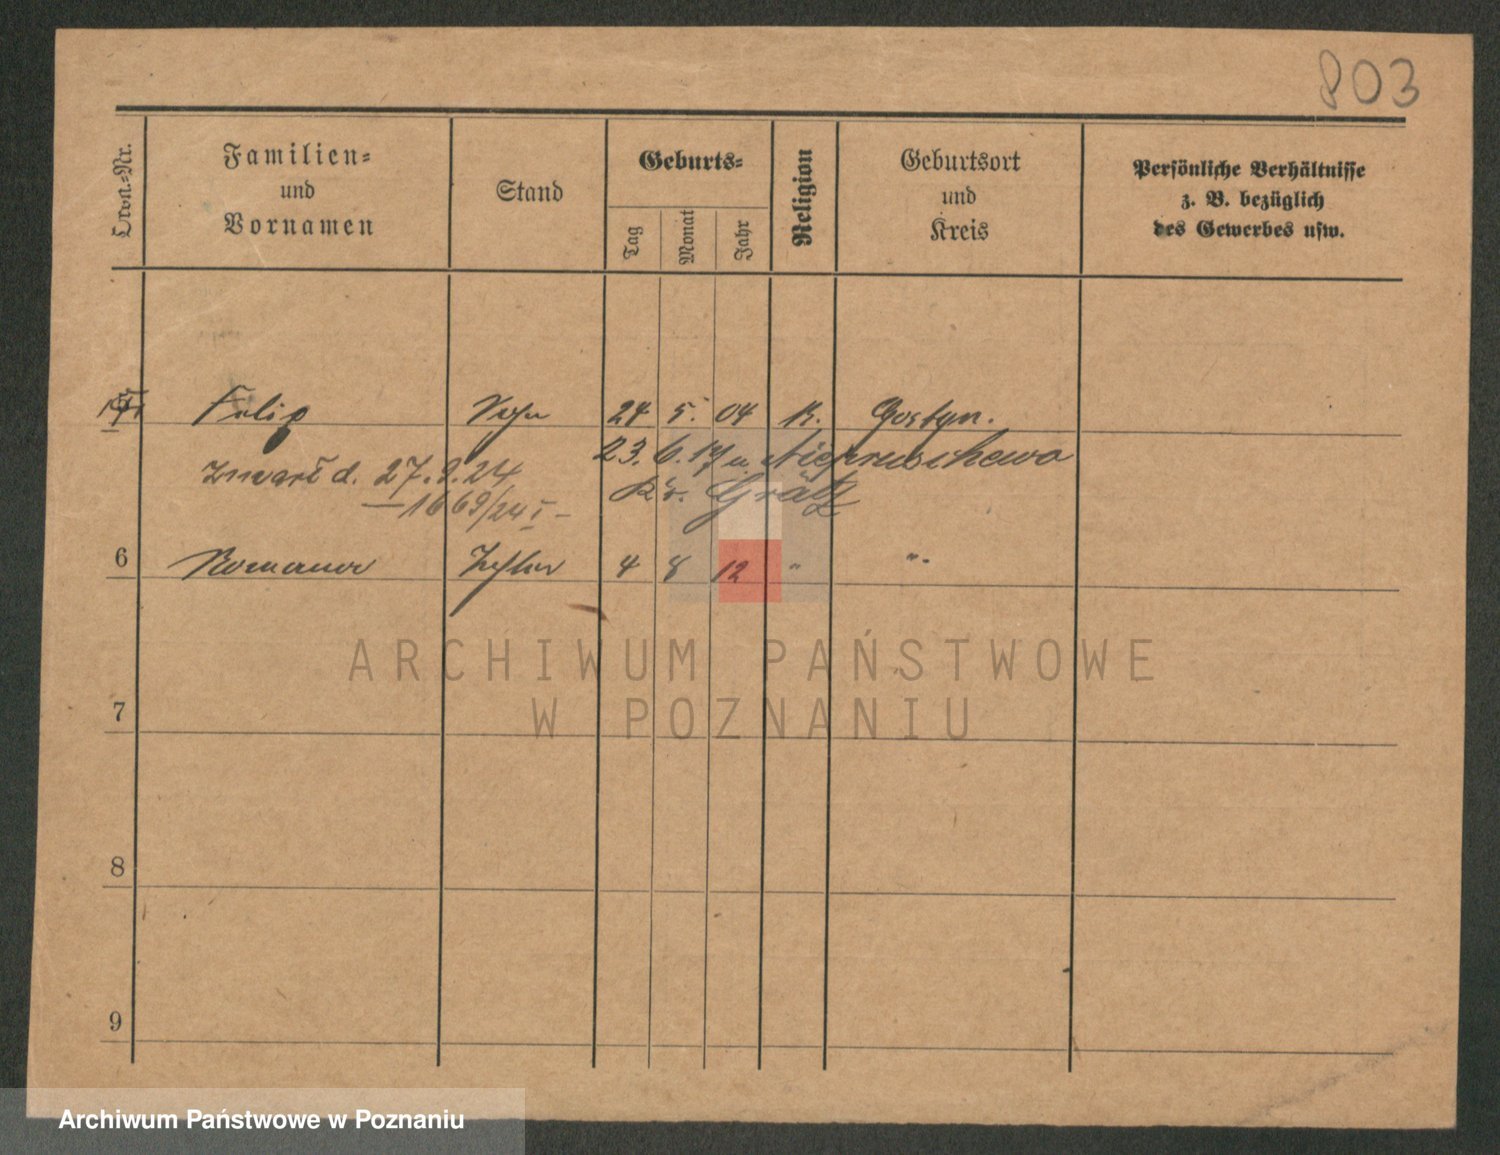 803
Ordn.-Nr.
Familien-
und
Vornamen
Stand
Geburts-
Tag
Monat
Jahr
Religion
Geburtsort
und
Kreis
Persönliche Verhältnisse
z. B. bezüglich
des Gewerbes usw.
Felip 24 5. 04 K. Gostyn.
23. 6. 17 u.
d. 27.9.24
Kr. Grätz
1669/24 I
6 Romana 4 8 12 " "
ARCHIWUM PAŃSTWOWE
W POZNANIU
7
8
9
Archiwum Państwowe w Poznaniu